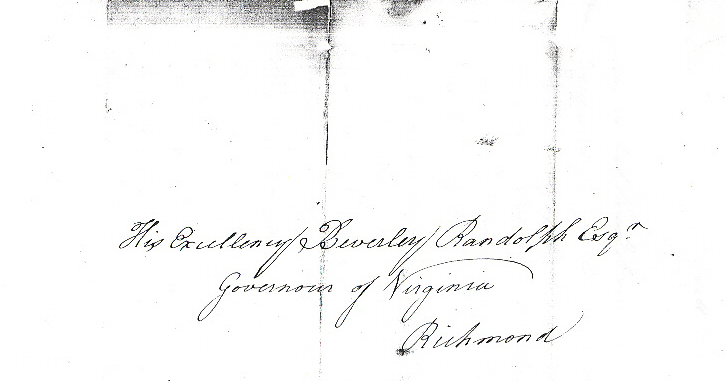 His Excellency Beverley Randolph Esqr
Governour of Virginia
Richmond